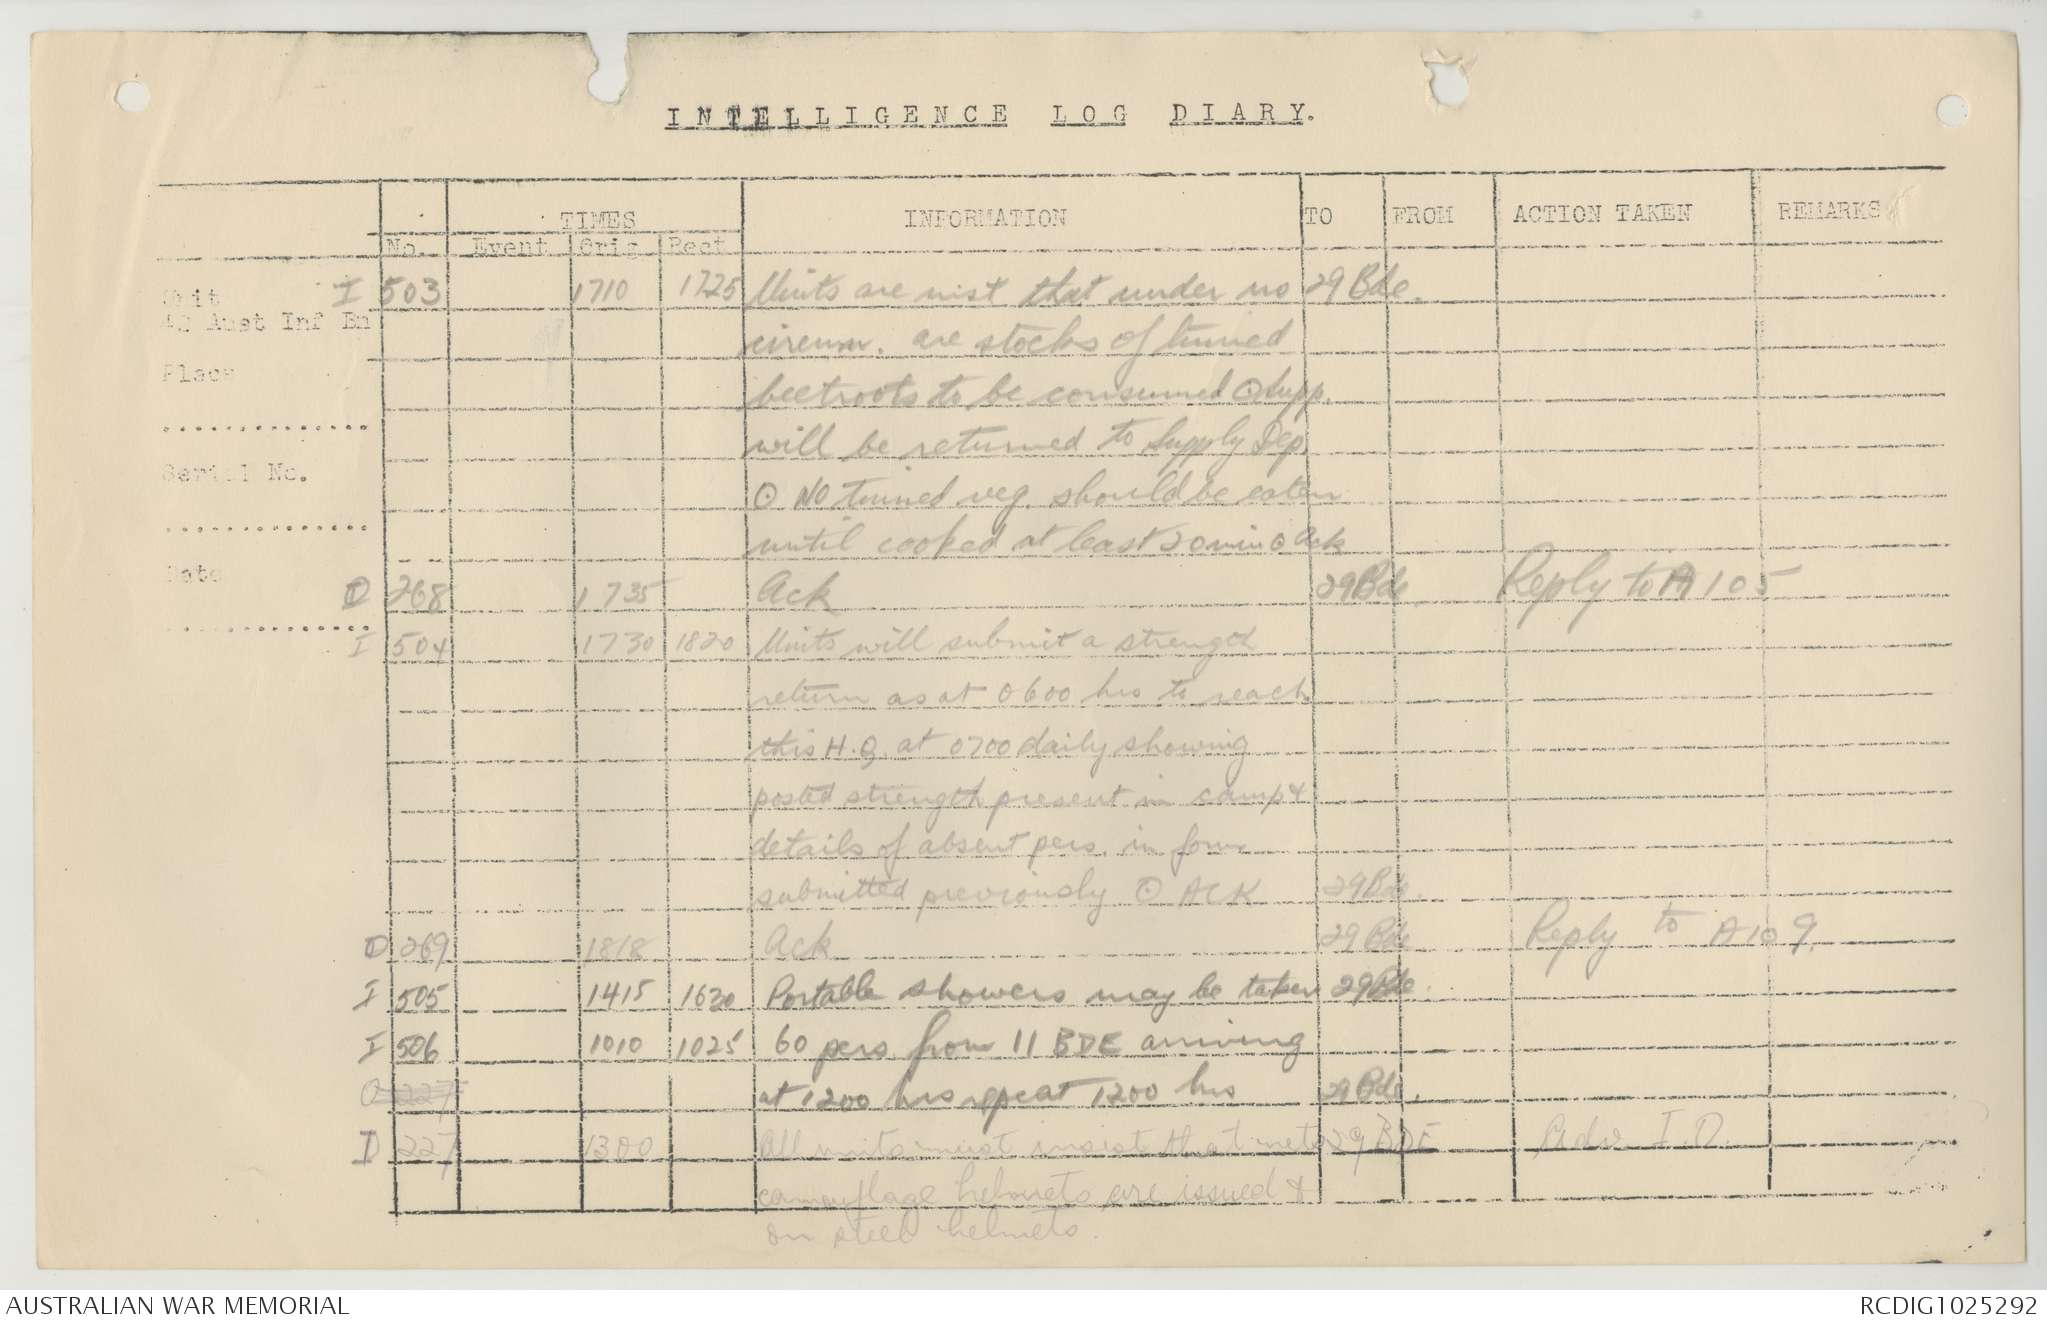 INTELLIGENCE LOG DIARY.
TIMES INFORMATION TO FROM ACTION TAKEN REMARKS
No. Event Orig Rect
Unit
Aust Inf Bn
Place
Serial No.
Date
I 503 1710 1725 Units are that under no 29 Bde.
circum. are stocks of tinned
beetroots to be consumed ⊙ Supp.
will be returned to Supply Dep.
⊙ NO tinned veg. should be eaten
until cooked at least 20 min ⊙ Ack
O 268 1735 Ack 29 Bde Reply to A105
I 504 1730 1820 Units will submit a strength
return as at 0600 hrs to reach
this H.Q. at 0700 daily showing
posted strength present in camp &
details of absent pers. in form
submitted previously ⊙ ACK 29 Bde.
O 269 1818 Ack 29 Bde Reply to A109.
I 505 1415 1630 Portable showers may be taken 29 Bde.
I 506 1010 1025 60 pers from 11 BDE arriving
O 227
at 1200 hrs repeat 1200 hrs 29 Bde.
O 227 1300 All units must insist that nets 29 BDE Adv I.O.
camouflage helmets are issued &
on steel helmets.
AUSTRALIAN WAR MEMORIAL RCDIG1025292